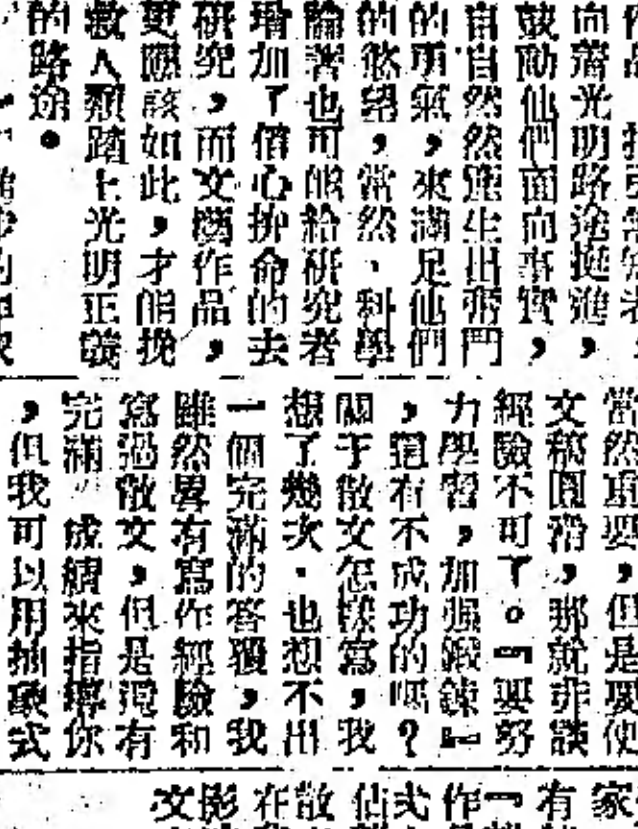 向着光明路途挺進，
鼓勵他們面向事實，
自自然然產生出奮鬥
的勇氣，來滿足他們
的慾望，當然，科學
論著也可能給研究者
增加了信心拚命的去
研究，而文藝作品，
更應該如此，才能挽
救人類踏上光明正義
的路途。
當然重要，但是要使
文稿圓滑，那就非談
經驗不可了。『要努
力學習，加强鍛鍊』
，還有不成功的嗎？
關于散文怎樣寫，我
想了幾次．也想不出
一個完滿的答覆，我
雖然畧有寫作經驗和
寫過散文，但是還有
完滿成績來指導你
，但我可以用抽象式
家
有
『
作
式
佔
散
在
影
文